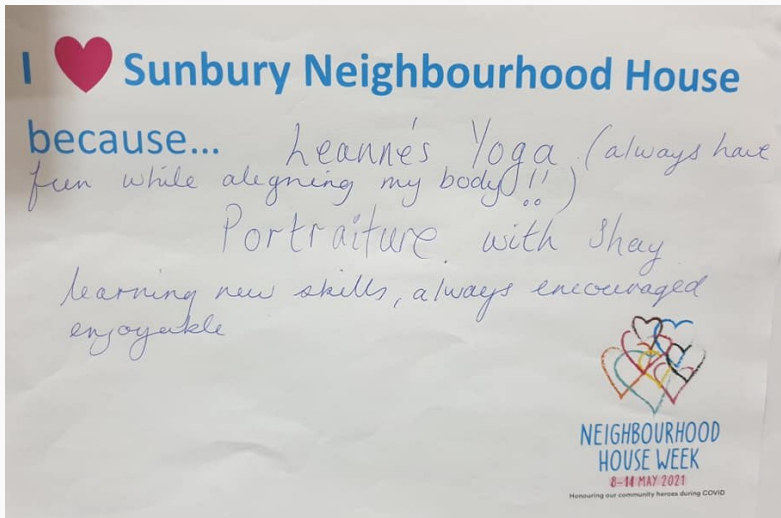 I ❤ Sunbury Neighbourhood House
because... Leanne's Yoga (always have
fun while alegning my body!!)
Portraiture with Shay
learning new skills, always encouraged
enjoyable
NEIGHBOURHOOD
HOUSE WEEK
8-14 MAY 2021
Honouring our community heroes during COVID